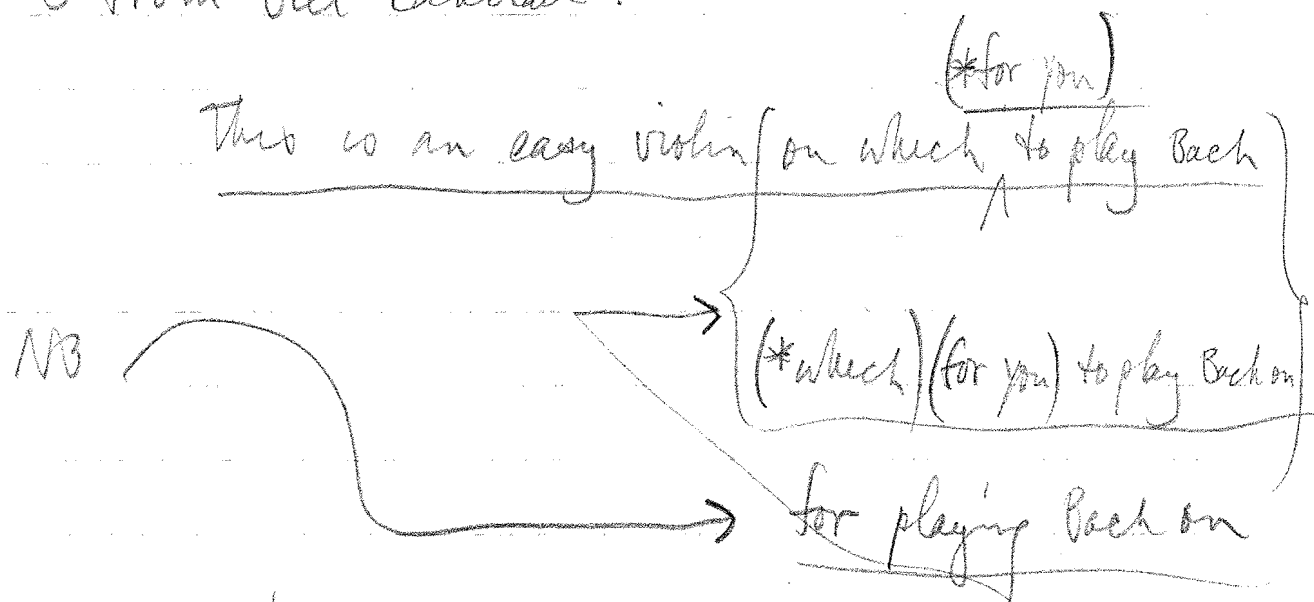 from
(*for you)
This is an easy violin { on which ∧ to play Bach
NB → (*which) (for you) to play Bach on }
→ for playing Bach on